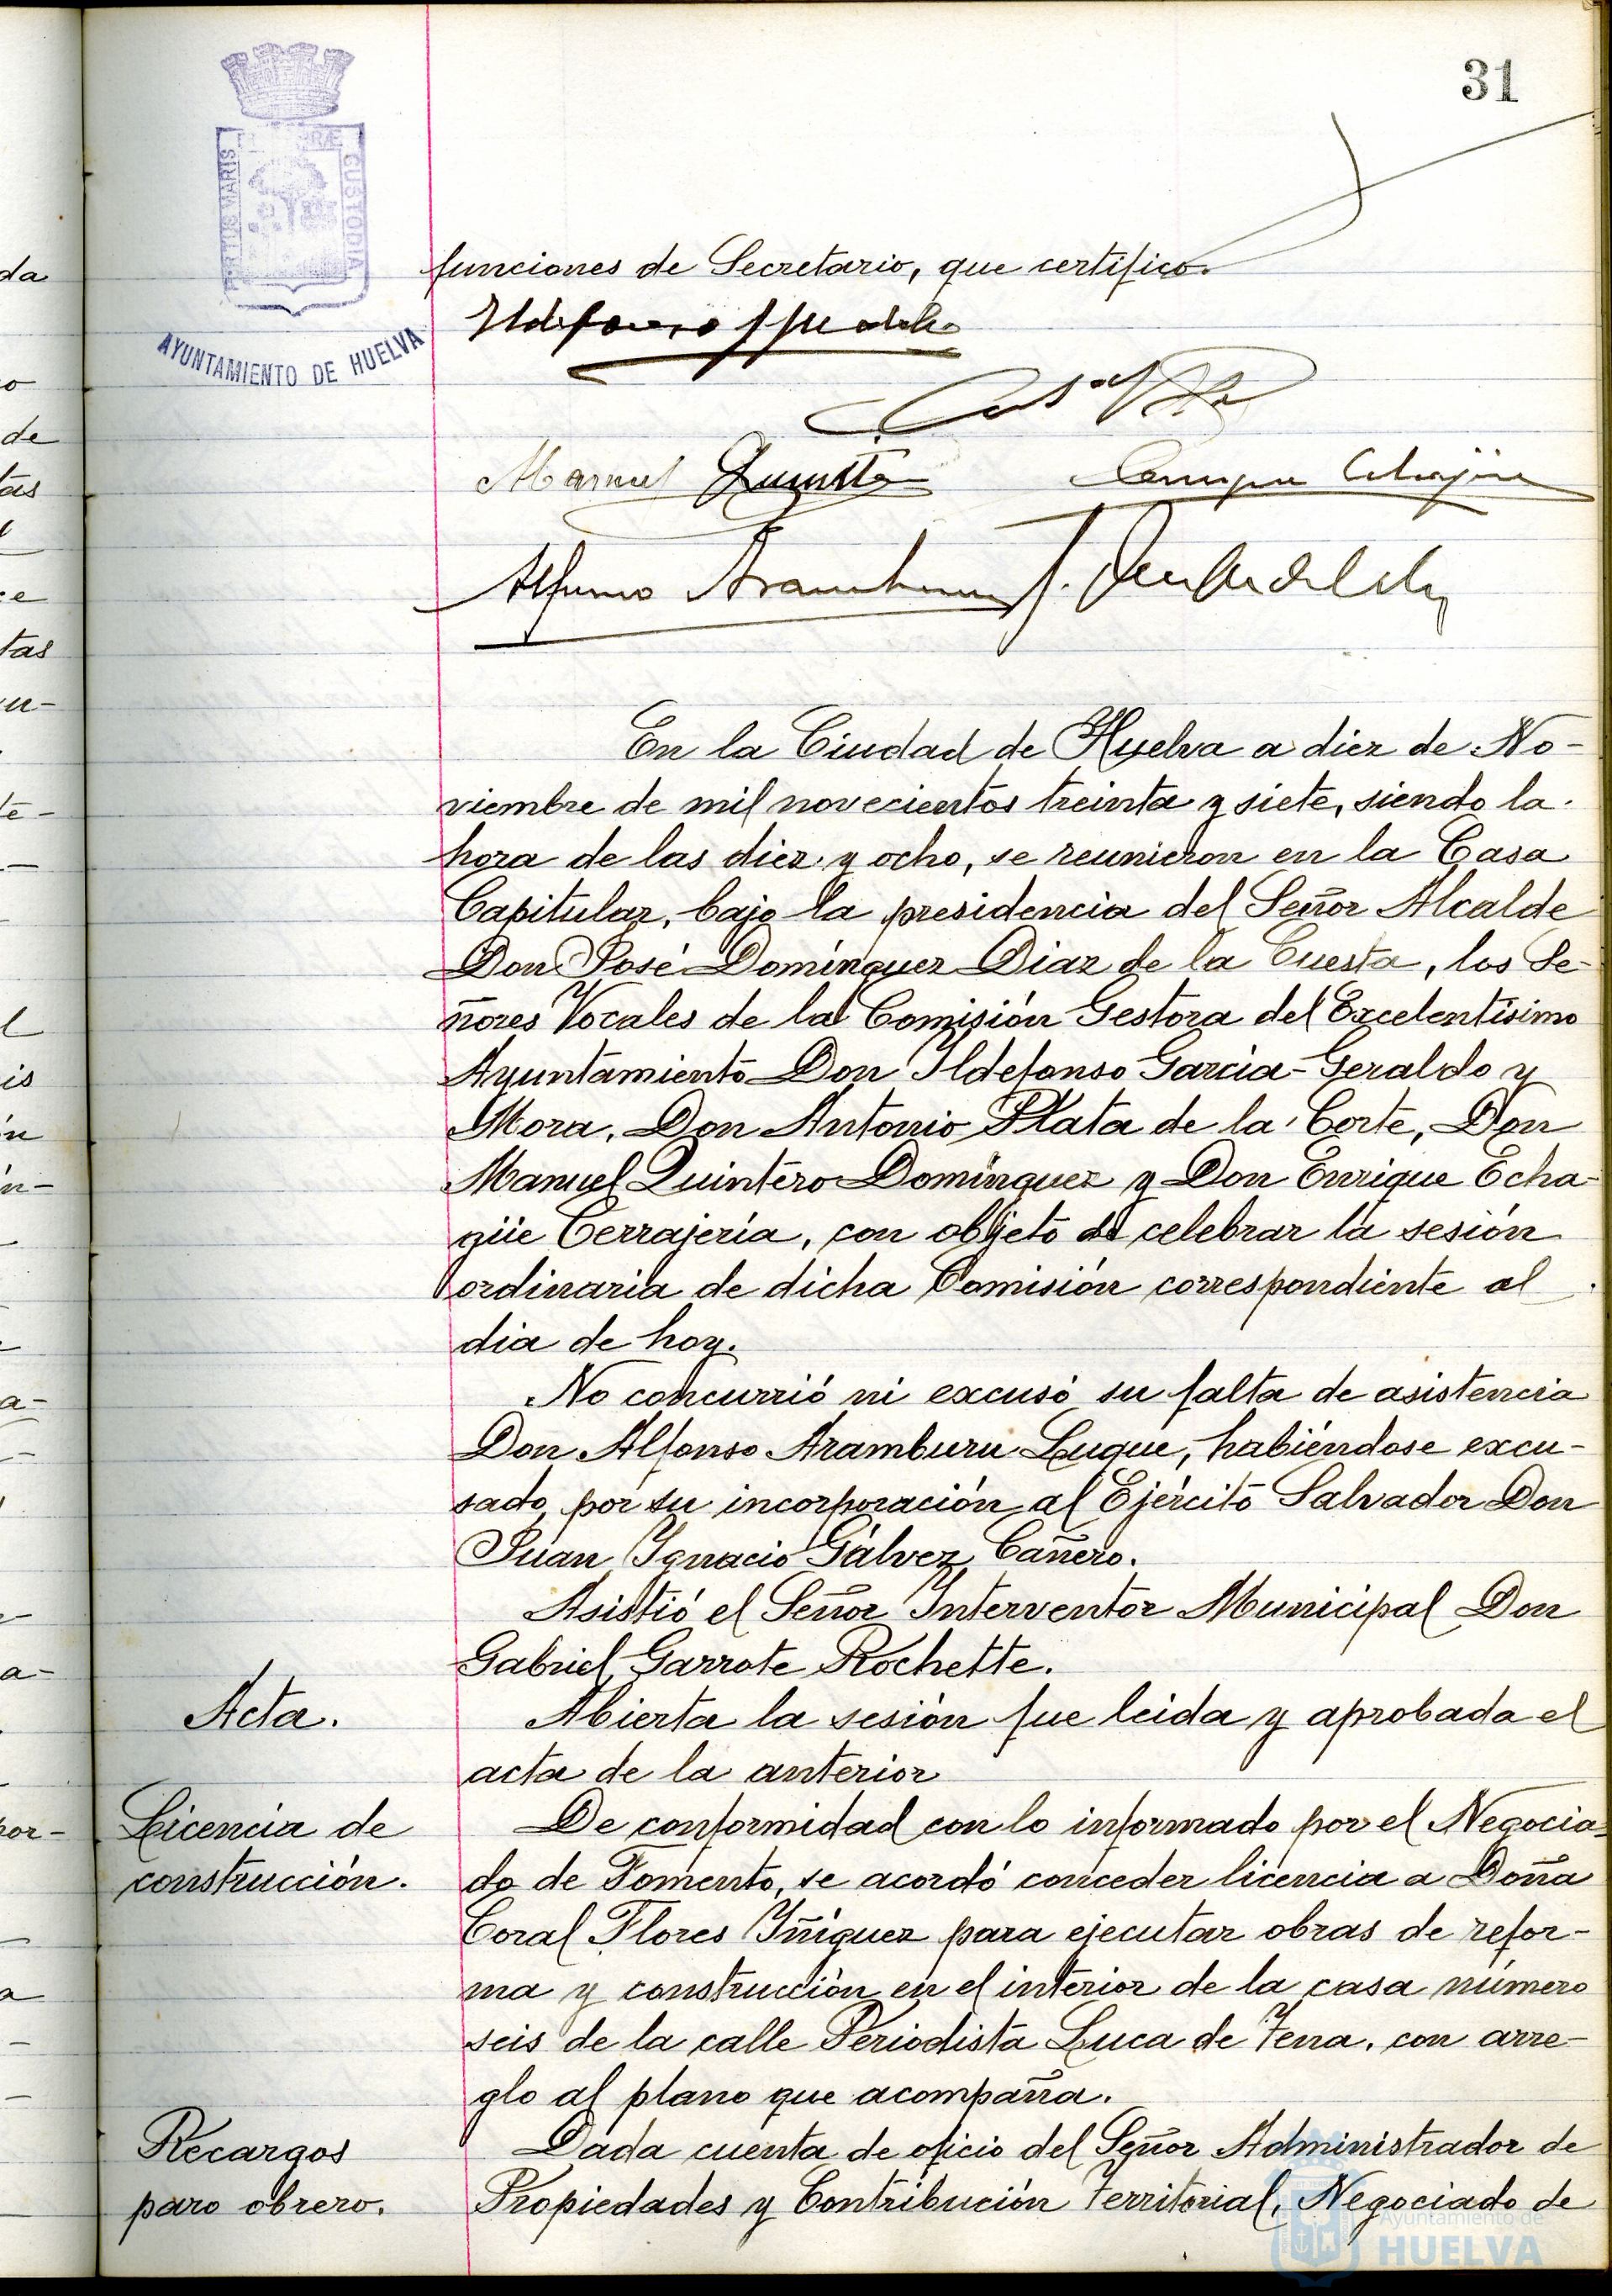 31
PORTUS MARIS
CUSTODIA
AYUNTAMIENTO DE HUELVA
funciones de Secretario, que certifico.
Ildefonso
Manuel Quintero
Alfonso Aramburu
En la Ciudad de Huelva a diez de No-
viembre de mil novecientos treinta y siete, siendo la
hora de las diez y ocho, se reunieron en la Casa
Capitular, bajo la presidencia del Señor Alcalde
Don José Domínguez Diaz de la Cuesta, los Se-
ñores Vocales de la Comisión Gestora del Excelentísimo
Ayuntamiento Don Ildefonso García-Geraldo y
Mora, Don Antonio Plata de la Corte, Don
Manuel Quintero Domínguez y Don Enrique Echa-
güe Cerrajería, con objeto de celebrar la sesión
ordinaria de dicha Comisión correspondiente al
dia de hoy.
No concurrió ni excusó su falta de asistencia
Don Alfonso Aramburu Luque, habiéndose excu-
sado por su incorporación al Ejército Salvador Don
Juan Ignacio Gálvez Cañero.
Asistió el Señor Interventor Municipal Don
Gabriel Garrote Rochette.
Acta.
Abierta la sesión fue leida y aprobada el
acta de la anterior
Licencia de
construcción.
De conformidad con lo informado por el Negocia-
do de Fomento, se acordó conceder licencia a Doña
Coral Flores Iñiguez para ejecutar obras de refor-
ma y construcción en el interior de la casa número
seis de la calle Periodista Luca de Tena, con arre-
glo al plano que acompaña.
Recargos
paro obrero.
Dada cuenta de oficio del Señor Administrador de
Propiedades y Contribución Territorial, Negociado de
Ayuntamiento de
HUELVA